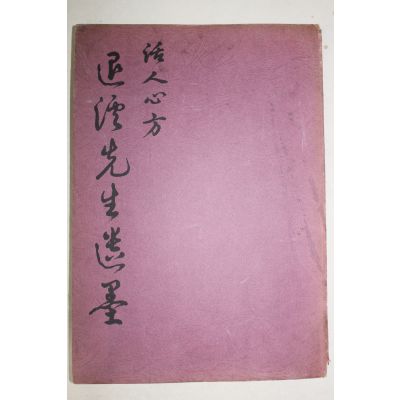 活人心方
退溪先生遺墨